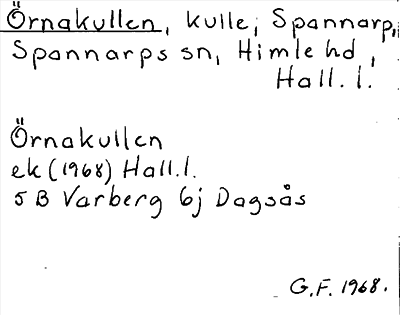 Örnakullen, kulle, Spannarp,
Spannarps sn, Himle hd,
Hall. l.
Örnakullen
ek (1968) Hall. l.
5 B Varberg 6j Dagsås
G.F. 1968.